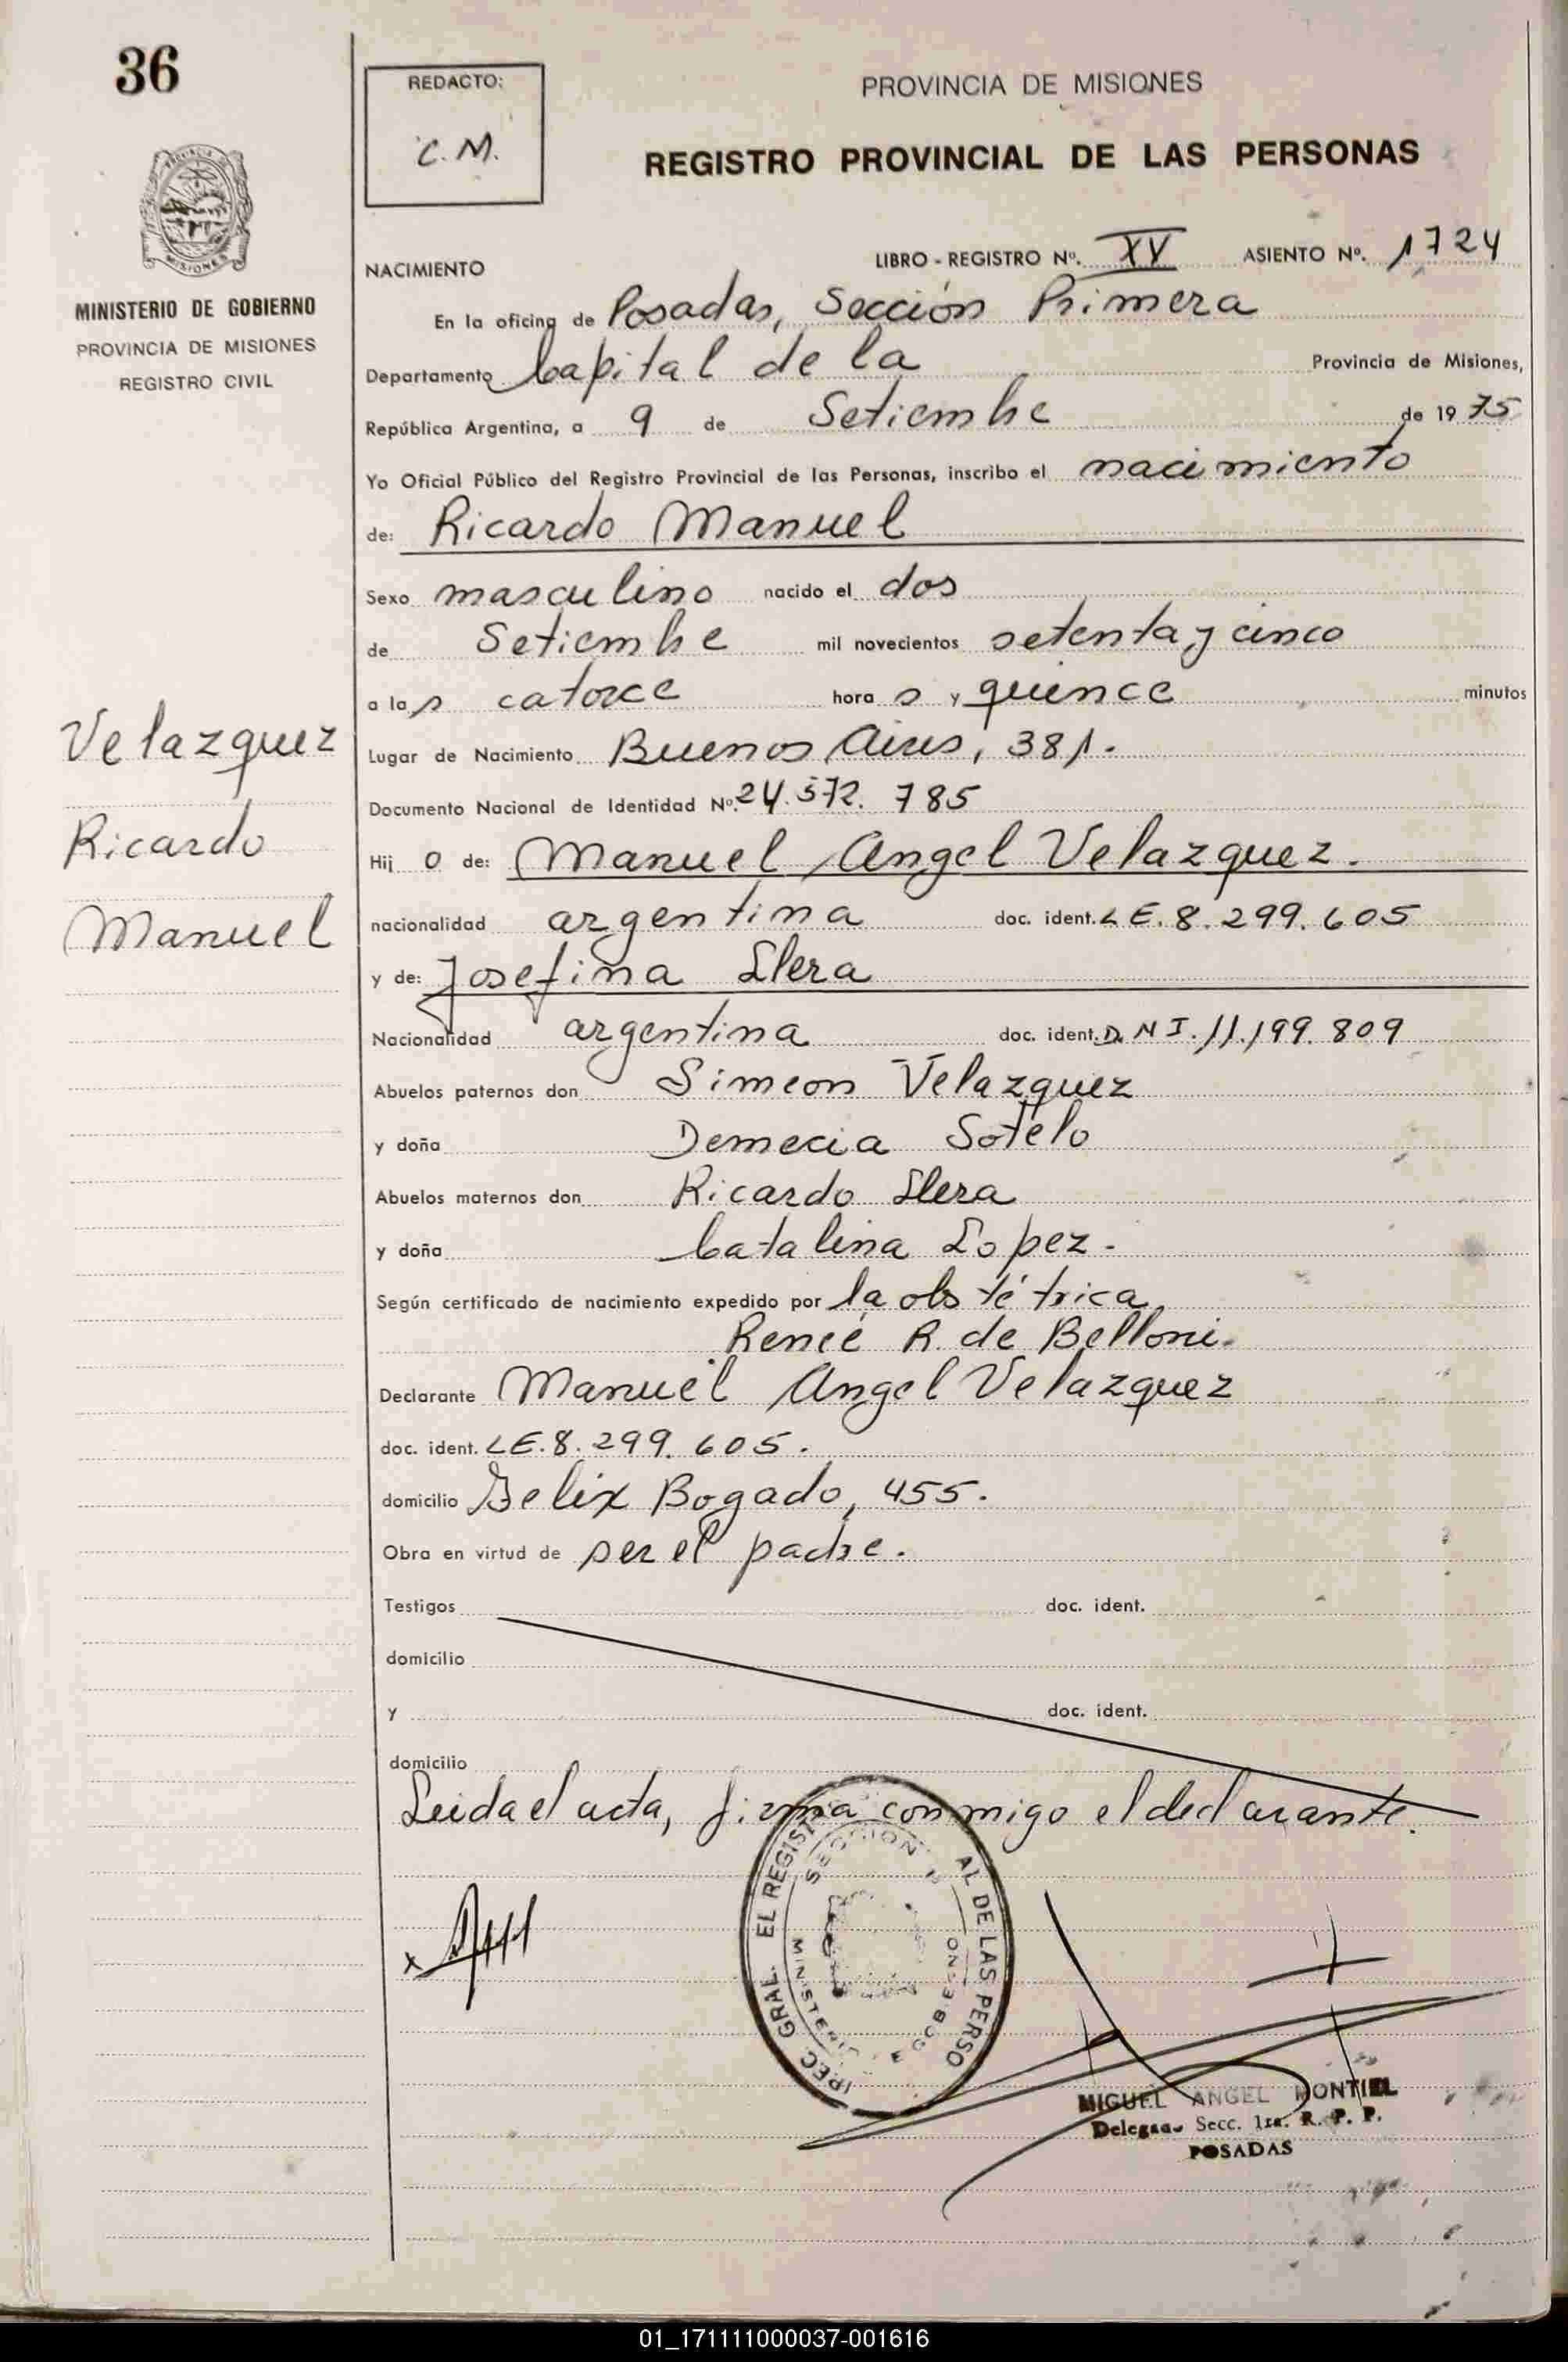 36
REDACTO:
C. M.
PROVINCIA DE MISIONES
REGISTRO PROVINCIAL DE LAS PERSONAS
MISIONES
MINISTERIO DE GOBIERNO
PROVINCIA DE MISIONES
REGISTRO CIVIL
NACIMIENTO
LIBRO - REGISTRO Nº. XV ASIENTO Nº. 1724
En la oficina de Posadas, Sección Primera
Departamento Capital de la Provincia de Misiones,
República Argentina, a 9 de Setiembre de 1975
Yo Oficial Público del Registro Provincial de las Personas, inscribo el nacimiento
de: Ricardo Manuel
Sexo masculino nacido el dos
de Setiembre mil novecientos setenta y cinco
a las catorce horas y quince minutos
Lugar de Nacimiento Buenos Aires, 381.
Documento Nacional de Identidad Nº. 24.572.785
Hijo de: Manuel Angel Velazquez.
nacionalidad argentina doc. ident. LE. 8.299.605
y de: Josefina Llera
Nacionalidad argentina doc. ident. DNI. 11.199.809
Abuelos paternos don Simeon Velazquez
y doña Demecia Sotelo
Abuelos maternos don Ricardo Llera
y doña Catalina Lopez.
Según certificado de nacimiento expedido por la obstétrica
Reneé R. de Belloni.
Declarante Manuel Angel Velazquez
doc. ident. LE. 8.299.605.
domicilio Felix Bogado, 455.
Obra en virtud de ser el padre.
Testigos doc. ident.
domicilio
y doc. ident.
domicilio
Leida el acta, firma conmigo el declarante.
Velazquez
Ricardo
Manuel
GRAL. EL REGIST AL DE LAS PERSO
SECCION
MINISTERIO E GOBIERNO
MIGUEL ANGEL MONTIEL
Secc. 1ra. R. P. P.
POSADAS
01_171111000037-001616